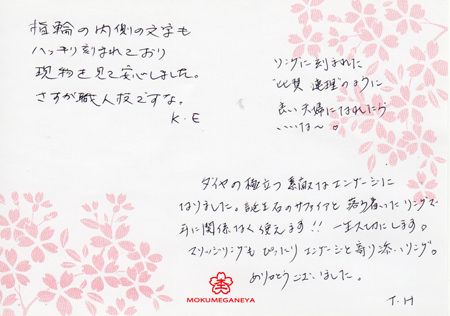 指輪の内側の文字も
ハッキリ刻まれており
現物を見て安心しました。
さすが職人技ですな。
K.E
リングに刻まれた
"比翼連理"のように
良い夫婦になれたら
いいな〜。
ダイヤの極立つ素敵なエンゲージに
なりました。誕生石のサファイアと落ち着いたリングで
年に関係なく使えます!! 一生大切にします。
マリッジリングもぴったりエンゲージと寄り添いリング。
ありがとうございました。
T.H
MOKUMEGANEYA